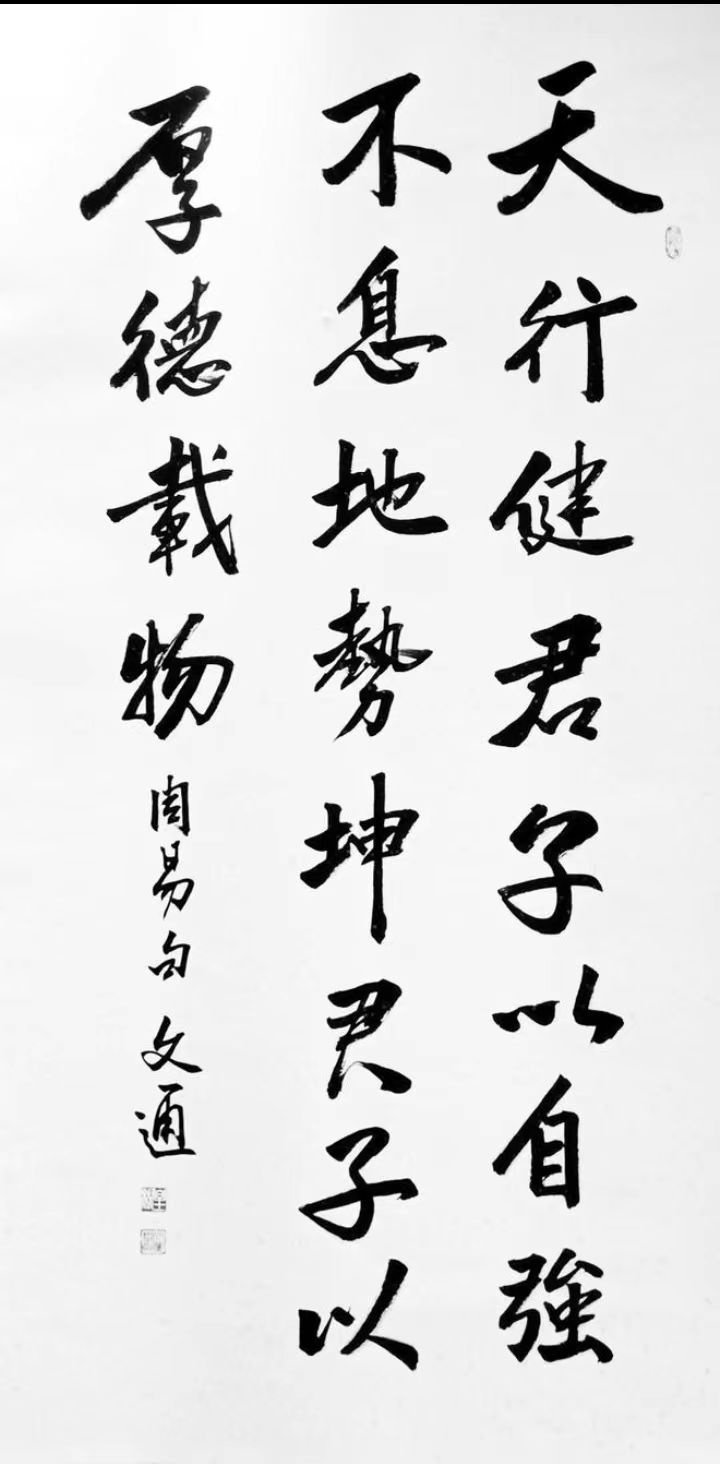 天行健君子以自強
不息地勢坤君子以
厚德載物 周易句 文通